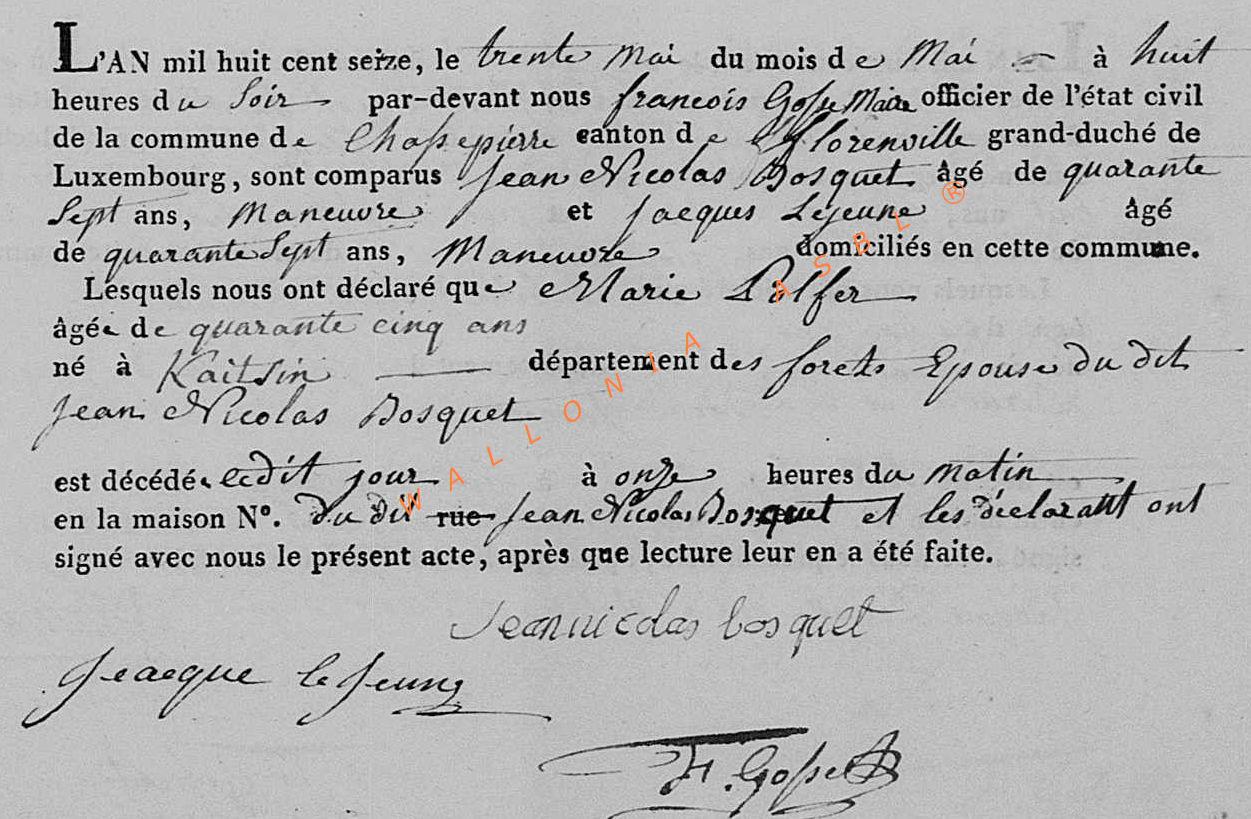 L'AN mil huit cent seize, le trente Mai du mois de Mai à huit
heures du Soir par-devant nous francois Gosse Maire officier de l'état civil
de la commune de Chassepierre canton de florenville grand-duché de
Luxembourg, sont comparus Jean Nicolas Bosquet âgé de quarante
Sept ans, Maneuvre et Jacques Lejeune âgé
de quarante Sept ans, Maneuvre domiciliés en cette commune.
Lesquels nous ont déclaré que Marie Polfer
âgée de quarante cinq ans
né à Kaitsin département des forets Epouse du dit
Jean Nicolas Bosquet
est décédé ledit jour à onze heures du matin
en la maison N°. du dit rue Jean Nicolas Bosquet et les déclarant ont
signé avec nous le présent acte, après que lecture leur en a été faite.
Jeannicolas bosquet
Jeacque le Jeune
F. Gosse
WALLONIA ASBL ®